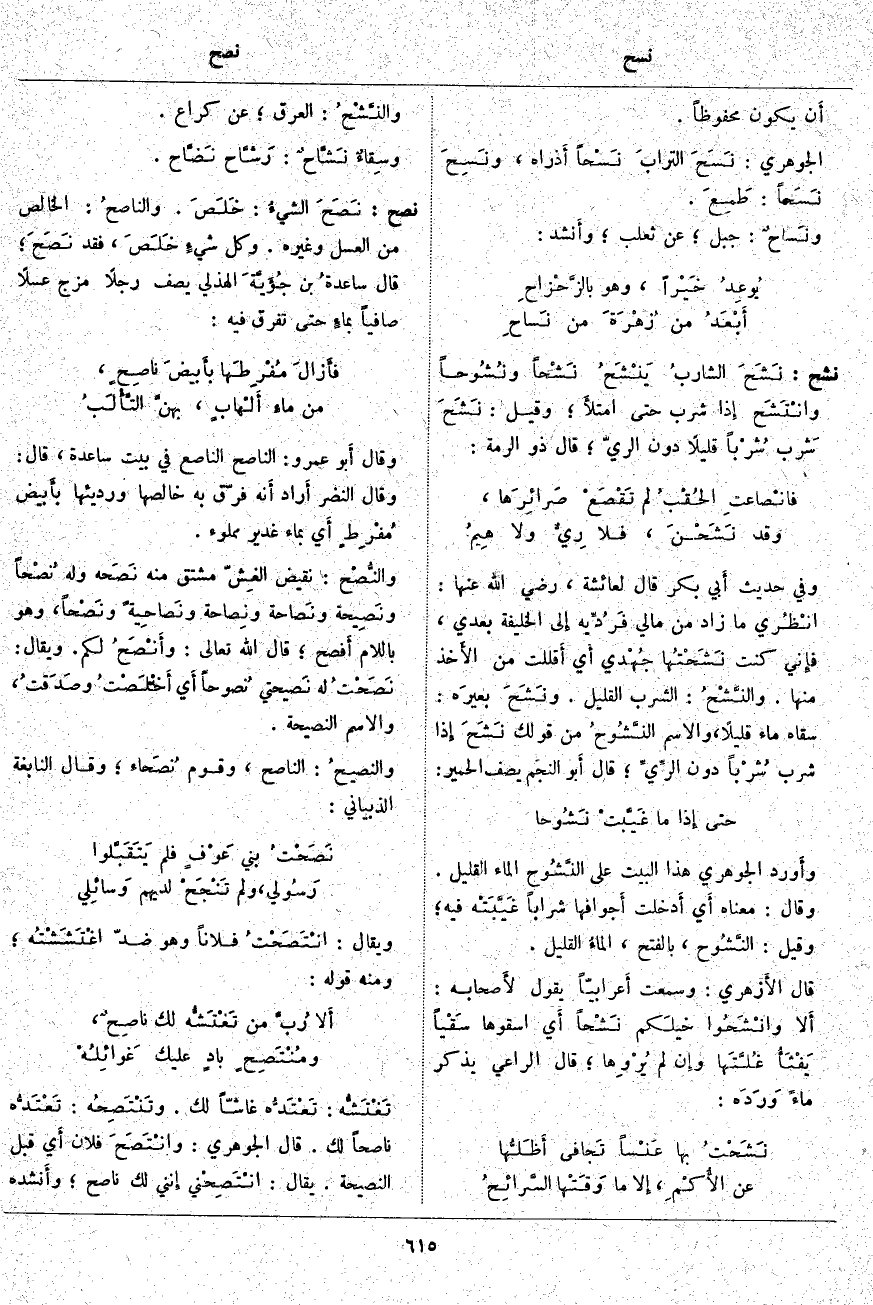 نسح
نصح
أن يكون محفوظاً .
الجوهري : نَسَحَ الترابَ نَسْحاً أذراه ، ونَسِحَ
نَسَحاً : طَمِعَ .
ونَساحٌ : جبل ؛ عن ثعلب ؛ وأنشد :
يُوعِدُ خَيْراً ، وهو بالزَّحْزاحِ
أَبْعَدُ من زُهْرَةَ من نَساحِ
نشح : نَشَحَ الشاربُ يَنْشَحُ نَشْحاً ونُشُوحاً
وانْتَشَح إذا شرب حتى امتلأ ؛ وقيل : نَشَحَ
شَرِب شُرْباً قليلًا دون الريّ ؛ قال ذو الرمة :
فانْصاعتِ الحُقْبُ لم تَقْصَعْ صَرائِرَها ،
وقد نَشَحْنَ ، فلا رِيٌّ ولا هِيمُ
وفي حديث أبي بكر قال لعائشة ، رضي الله عنها :
انظُري ما زاد من مالي فَرُدِّيه إلى الخليفة بعدي ،
فإني كنت نَشَحْتُها جُهْدي أي أقللت من الأخذ
منها . والنَّشْحُ : الشرب القليل . ونَشَحَ بعيرَه :
سقاه ماء قليلًا، والاسم النَّشُوحُ من قولك نَشَحَ إذا
شرب شُرْباً دون الرِّيِّ ؛ قال أبو النجم يصف الحمير:
حتى إذا ما غَيَّبتْ نَشُوحا
وأورد الجوهري هذا البيت على النَّشُوح الماء القليل .
وقال : معناه أي أدخلت أجوافها شراباً غَيَّبَتْه فيه؛
وقيل : النَّشُوح ، بالفتح ، الماءُ القليل .
قال الأزهري : وسمعت أعرابيّاً يقول لأصحابه :
ألا وانْشَحُوا خيلكم نَشْحاً أي اسقوها سَقْياً
يَفْثَأُ غُلَّتَها وإن لم يُرْوِها ؛ قال الراعي يذكر
ماءً وَرَدَه :
نَشَحْتُ بها عَنْساً تَجافى أظَلُّها
عن الأُكْمِ ، إلا ما وَقَتْها السَّرائِحُ
والنَّشْحُ : العرق ؛ عن كراع .
وسِقاءٌ نَشَّاحٌ : رَشَّاح نَضَّاح .
نصح : نَصَحَ الشيءُ : خَلَصَ . والناصحُ : الخالص
من العسل وغيره . وكل شيءٍ خَلَصَ ، فقد نَصَحَ؛
قال ساعدةُ بن جُؤيَّةَ الهذلي يصف رجلًا مزج عسلًا
صافياً بماءٍ حتى تفرق فيه :
فأزالَ مُفْرِطَها بأبيضَ ناصحٍ ،
من ماء ألْهابٍ ، بهنَّ التَّألَبُ
وقال أبو عمرو: الناصح الناصع في بيت ساعدة ، قال:
وقال النضر أراد أنه فرّق به خالصها ورديئها بأبيض
مُفْرِطٍ أي بماء غدير مملوء .
والنُّصْح : نقيض الغِشّ مشتق منه نَصَحه وله نُصْحاً
ونَصِيحة ونَصاحة ونِصاحة ونَصاحِيةً ونَصْحاً، وهو
باللام أفصح ؛ قال الله تعالى : وأَنْصَحُ لكم. ويقال:
نَصَحْتُ له نَصيحتي نُصوحاً أي أَخْلَصْتُ وصَدَقْتُ،
والاسم النصيحة .
والنصيحُ : الناصح ، وقوم نُصَحاء ؛ وقال النابغة
الذبياني :
نَصَحْتُ بني عَوْفٍ فلم يَتَقَبَّلوا
رَسُولي، ولم تَنْجَحْ لديهم وَسائلي
ويقال : انْتَصَحْتُ فلاناً وهو ضدّ اغْتَشَشْتُه ؛
ومنه قوله :
ألا رُبَّ من تَغْتَشُّه لك ناصحٌ،
ومُنْتَصِحٍ بادٍ عليك غَوائِلُهْ
تَغْتَشُّه : تَعْتَدُّه غاشّاً لك . وتَنْتَصِحُه : تَعْتَدُّه
ناصحاً لك . قال الجوهري : وانْتَصَحَ فلان أي قبل
النصيحة . يقال : انْتَصِحْني إنني لك ناصح ؛ وأنشده
٦١٥